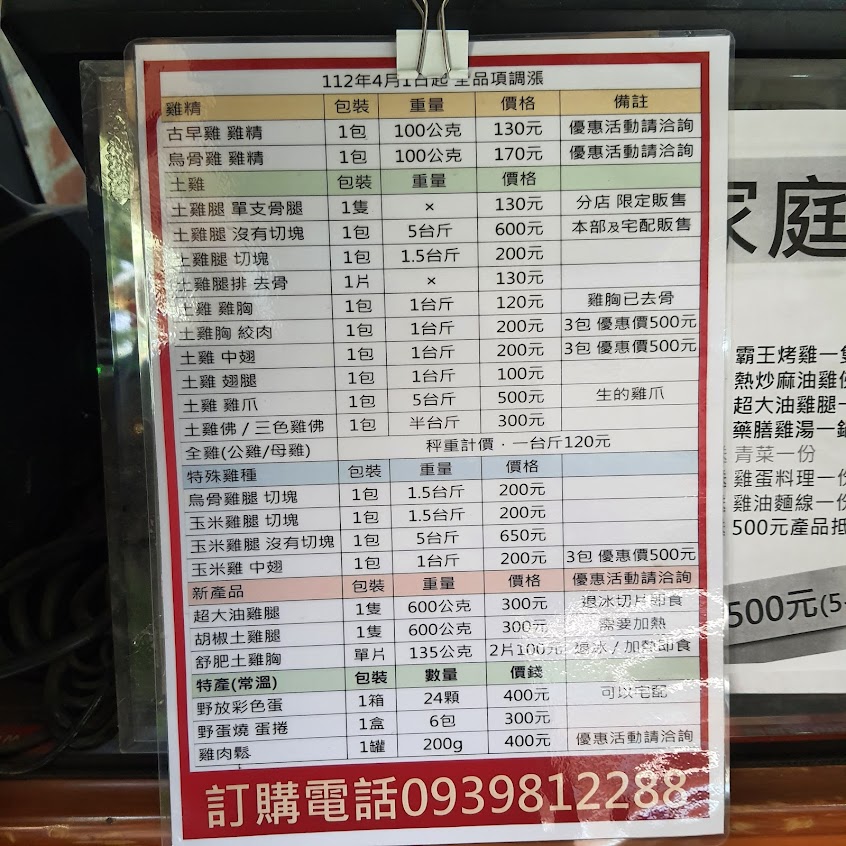 112年4月1日起 全品項調漲
雞精 包裝 重量 價格 備註
古早雞 雞精 1包 100公克 130元 優惠活動請洽詢
烏骨雞 雞精 1包 100公克 170元 優惠活動請洽詢
土雞 包裝 重量 價格
土雞腿 單支骨腿 1隻 × 130元 分店 限定販售
土雞腿 沒有切塊 1包 5台斤 600元 本部及宅配販售
土雞腿 切塊 1包 1.5台斤 200元
土雞腿排 去骨 1片 × 130元
土雞 雞胸 1包 1台斤 120元 雞胸已去骨
土雞胸 絞肉 1包 1台斤 200元 3包 優惠價500元
土雞 中翅 1包 1台斤 200元 3包 優惠價500元
土雞 翅腿 1包 1台斤 100元
土雞 雞爪 1包 5台斤 500元 生的雞爪
土雞佛 / 三色雞佛 1包 半台斤 300元
全雞(公雞/母雞) 秤重計價．一台斤120元
特殊雞種 包裝 重量 價格
烏骨雞腿 切塊 1包 1.5台斤 200元
玉米雞腿 切塊 1包 1.5台斤 200元
玉米雞腿 沒有切塊 1包 5台斤 650元
玉米雞 中翅 1包 1台斤 200元 3包 優惠價500元
新產品 包裝 重量 價格 優惠活動請洽詢
超大油雞腿 1隻 600公克 300元 退冰切片即食
胡椒土雞腿 1隻 600公克 300元 需要加熱
舒肥土雞胸 單片 135公克 2片100元 退冰 / 加熱即食
特產(常溫) 包裝 數量 價錢
野放彩色蛋 1箱 24顆 400元 可以宅配
野蛋燒 蛋捲 1盒 6包 300元
雞肉鬆 1罐 200g 400元 優惠活動請洽詢
訂購電話0939812288
家庭
霸王烤雞一隻
熱炒麻油雞佛
超大油雞腿一
藥膳雞湯一鍋
青菜一份
雞蛋料理一份
雞油麵線一份
500元產品抵
500元(5